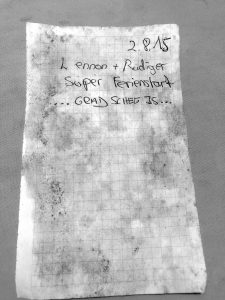 2.8.15
Lennon + Rüdiger
Super Ferienstart
... GRAD SCHEE IS ...